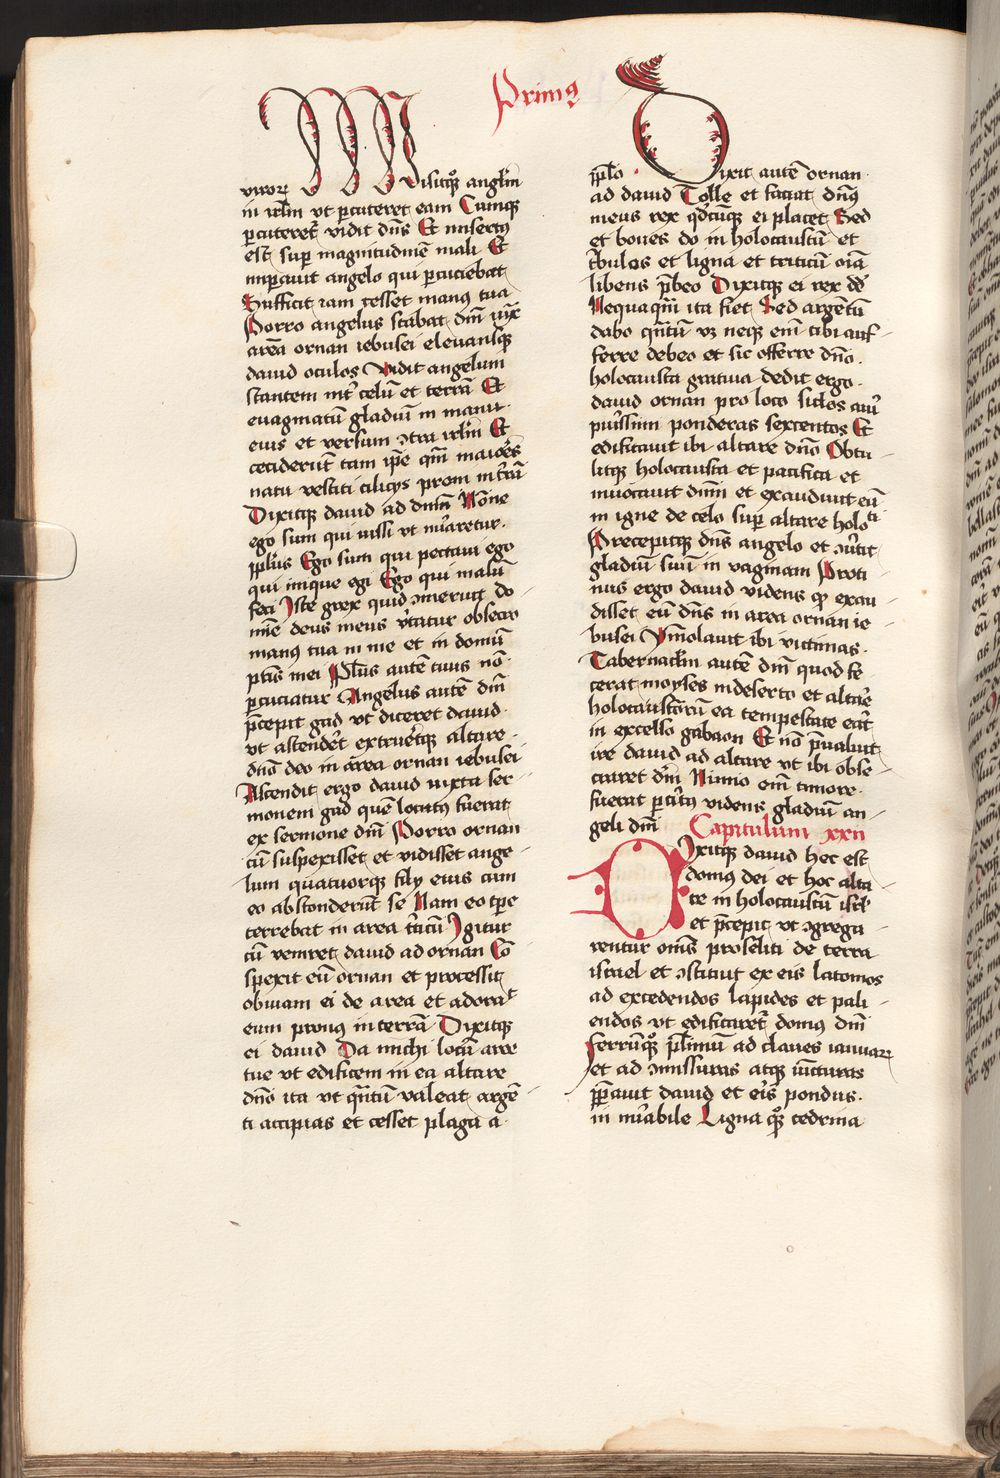 Primus
viror Misitqȝ angl'm
in irl'm vt p̱cuteret eam Cumqȝ
p̱cuteret᷑ vidit dn̄s Et miserty
est sup̱ magnitudinē mali Et
imp̱auit angelo qui p̱cuciebat
Sufficit iam cesset manus tua
Porro angelus stabat dn̄i iux͞
areā ornan iebusei eleuansqȝ
dauid oculos Vidit angelum
stantem int᷑ celū et terrā Et
euagīatū gladiū in manu
eius et versum ↄtra irl'm Et
ceciderūt tam ip̄e qm̄ maiores
natu vestiti cilicijs proni in t᷑rā
Dixitqȝ dauid ad dn̄m Nonne
ego sum qui iussi vt nūaretur
pplūs Ego sum qui peccaui ego
qui inique egi Ego qui malū
feci Iste grex quid ↄmeruit do-
mīe deus meus v᷑tatur obsecro
manus tua in me et in domū
pt̄is mei Pplūs autē tuus nō
p̱cuciatur Angelus autē dn̄i
p̄cepit gad vt diceret dauid
vt ascendēt extrueretqȝ altare
dn̄o deo in area ornan iebusei
Ascendit ergo dauid iuxta ser-
monem gad quē locutus fuerat
ex sermone dn̄i Porro ornan
cū suspexisset et vidisset ange-
lum quatuorqȝ filij eius cum
eo absconderūt se Nam eo tp̄e
terrebat in area t᷑ticū Igitur
cū veniret dauid ad ornan Cō-
spexit eū ornan et processit
obuiam ei de area et adorat᷑
eum pronus in terrā Dixitqȝ
ei dauid Da michi locū aree
tue vt edificem in ea altare
dn̄o ita vt qn̄tū valeat argē-
ti accipias et cesset plaga a
pplo Dixit autē ornan
ad dauid Tolle et faciat dn̄us
meus rex qd̄cūqȝ ei placet Sed
et boues do in holocaustū et
t᷑bulos et ligna et triticū oīā
libens p̄beo Dixitqȝ ei rex dd̄
Nequaqm̄ ita fiet Sed argētū
dabo qn̄tū vȝ neqȝ enī tibi auf-
ferre debeo et sic offerre dn̄o
holocausta gratuia dedit ergo
dauid ornan pro loco siclos aur̄
purissimi ponderas sexcentos Et
edificauit ibi altare dn̄o Obtu-
litqȝ holocausta et pacifica et
inuocauit dn̄m et exaudiuit eū
in igne de celo sup̱ altare holoti
Precepitqȝ dn̄s angelo et ↄu᷑tit
gladiū suū in vaginam Proti-
nus ergo dauid videns qȝ exau-
disset eū dn̄s in area ornan ie-
busei Ymolauit ibi victimas
Tabernacl'm autē dn̄i quod fe-
cerat moyses in deserto et altare
holocaustorū ea tempestate erāt
in excelso gabaon Et nō p̄ualuit
ire dauid ad altare vt ibi obse-
craret dn̄m Nimio enī timore
fuerat p̱t᷑itus videns gladiū an-
geli dn̄i Capitulum xxii
Dixitqȝ dauid hec est
domus dei et hoc alta-
re in holocaustū isrl'
et p̄cepit vt ↄgrega-
rentur om̄es proseliti de terra
israel et ↄstituit ex eis latomos
ad excedendos lapides et pali-
endos vt edificaret᷑ domus dn̄i
Ferrūqȝ pl̄imū ad clauos ianuar
et ad ↄmissuras atqȝ iūcturas
pp̱auit dauid et eris pondus
in nūabile Ligna qȝ cedrina